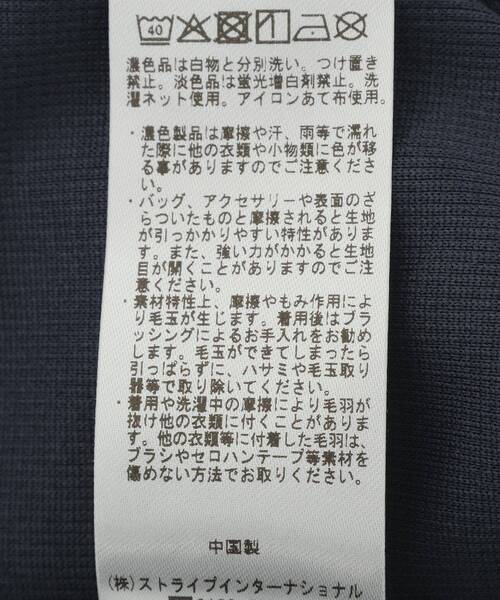 40
濃色品は白物と分別洗い。つけ置き
禁止。淡色品は蛍光増白剤禁止。洗
濯ネット使用。アイロンあて布使用。
・濃色製品は摩擦や汗、雨等で濡れ
た際に他の衣類や小物類に色が移
る事がありますのでご注意くださ
い。
・バッグ、アクセサリーや表面のざ
らついたものと摩擦されると生地
が引っかかりやすい特性がありま
す。また、強い力がかかると生地
目が開くことがありますのでご注
意ください。
・素材特性上、摩擦やもみ作用によ
り毛玉が生じます。着用後はブラ
ッシングによるお手入れをお勧め
します。毛玉ができてしまったら
引っぱらずに、ハサミや毛玉取り
器等で取り除いてください。
・着用や洗濯中の摩擦により毛羽が
抜け他の衣類に付くことがありま
す。他の衣類等に付着した毛羽は、
ブラシやセロハンテープ等素材を
傷めない方法でお取りください。
中国製
(株)ストライプインターナショナル